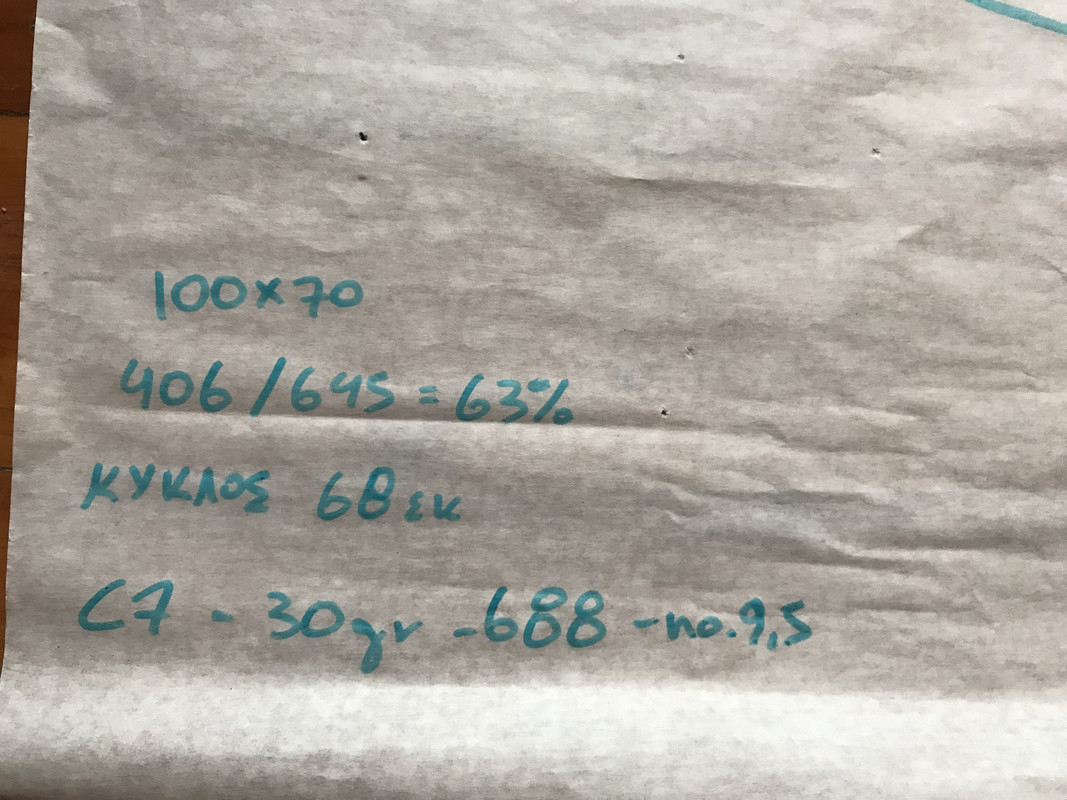 100x70
406/645=63%
ΚΥΚΛΟΣ 68 εκ
C7 - 30gr - 688 - no.9,5